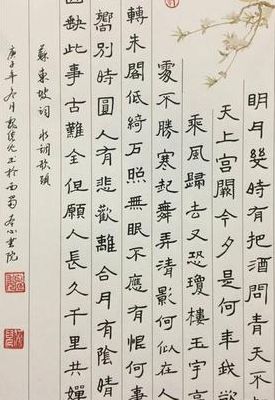 明月幾時有把酒問青天不
天上宮闕今夕是何年我欲
乘風歸去又恐瓊樓玉宇高
處不勝寒起舞弄清影何似在人
轉朱閣低綺戶照無眠不應有恨何事
嚮別時圓人有悲歡離合月有陰晴
圓缺此事古難全但願人長久千里共嬋
蘇東坡詞 水調歌頭
庚子年冬月 於西蜀 書院